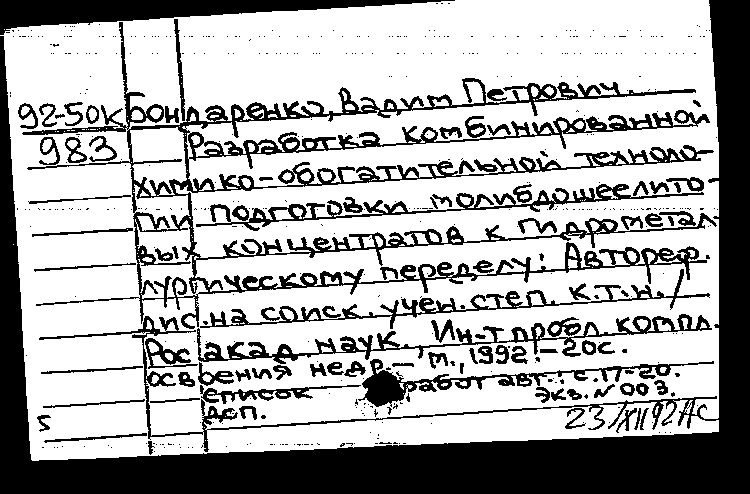 92-50к Бондаренко, Вадим Петрович.
983 Разработка комбинированной
химико-обогатительной техноло-
гии подготовки молибдошеелито-
вых концентратов к гидрометал-
лургическому переделу: Автореф.
дис. на соиск. учен. степ. к.т.н. /
Рос. акад. наук., Ин-т пробл. компл.
освоения недр. — М., 1992. — 20с.
список работ авт.: с. 17-20.
ДСП. Экз. N 003.
5 23/XII 92 Ас